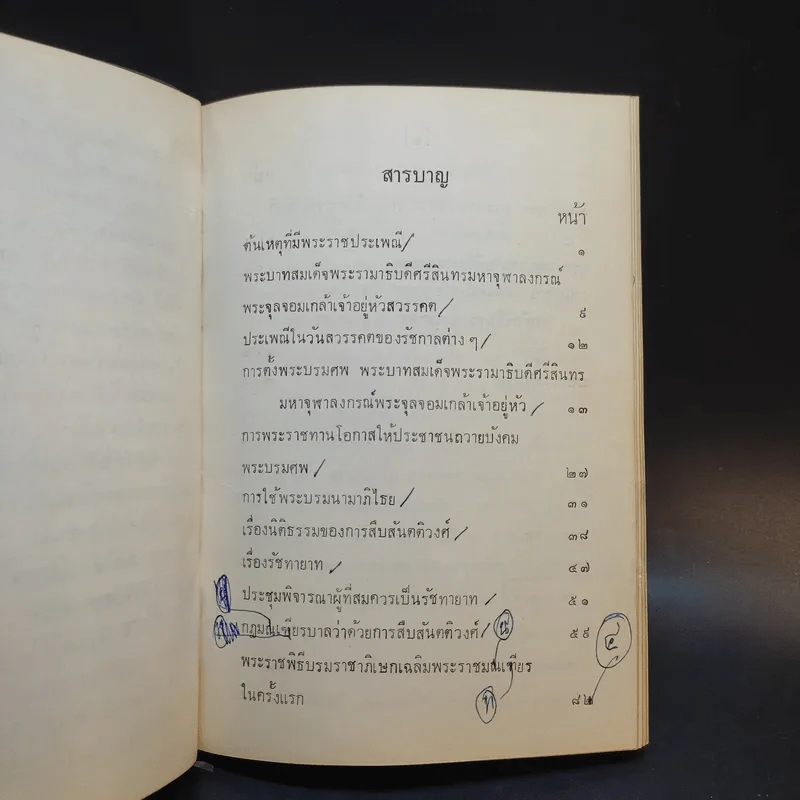 สารบาญ
หน้า
ต้นเหตุที่มีพระราชประเพณี/ ๑
พระบาทสมเด็จพระรามาธิบดีศรีสินทรมหาจุฬาลงกรณ์
พระจุลจอมเกล้าเจ้าอยู่หัวสวรรคต/ ๙
ประเพณีในวันสวรรคตของรัชกาลต่าง ๆ/ ๑๒
การตั้งพระบรมศพ พระบาทสมเด็จพระรามาธิบดีศรีสินทร
มหาจุฬาลงกรณ์พระจุลจอมเกล้าเจ้าอยู่หัว/ ๑๓
การพระราชทานโอกาสให้ประชาชนถวายบังคม
พระบรมศพ/ ๒๗
การใช้พระบรมนามาภิไธย/ ๓๑
เรื่องนิติธรรมของการสืบสันตติวงศ์/ ๓๘
เรื่องรัชทายาท/ ๔๗
ประชุมพิจารณาผู้ที่สมควรเป็นรัชทายาท/ ๕๑
กฎมณเฑียรบาลว่าด้วยการสืบสันตติวงศ์/ น ๕๙ ๔
พระราชพิธีบรมราชาภิเษกเฉลิมพระราชมณเฑียร
ในครั้งแรก ท ๘๒